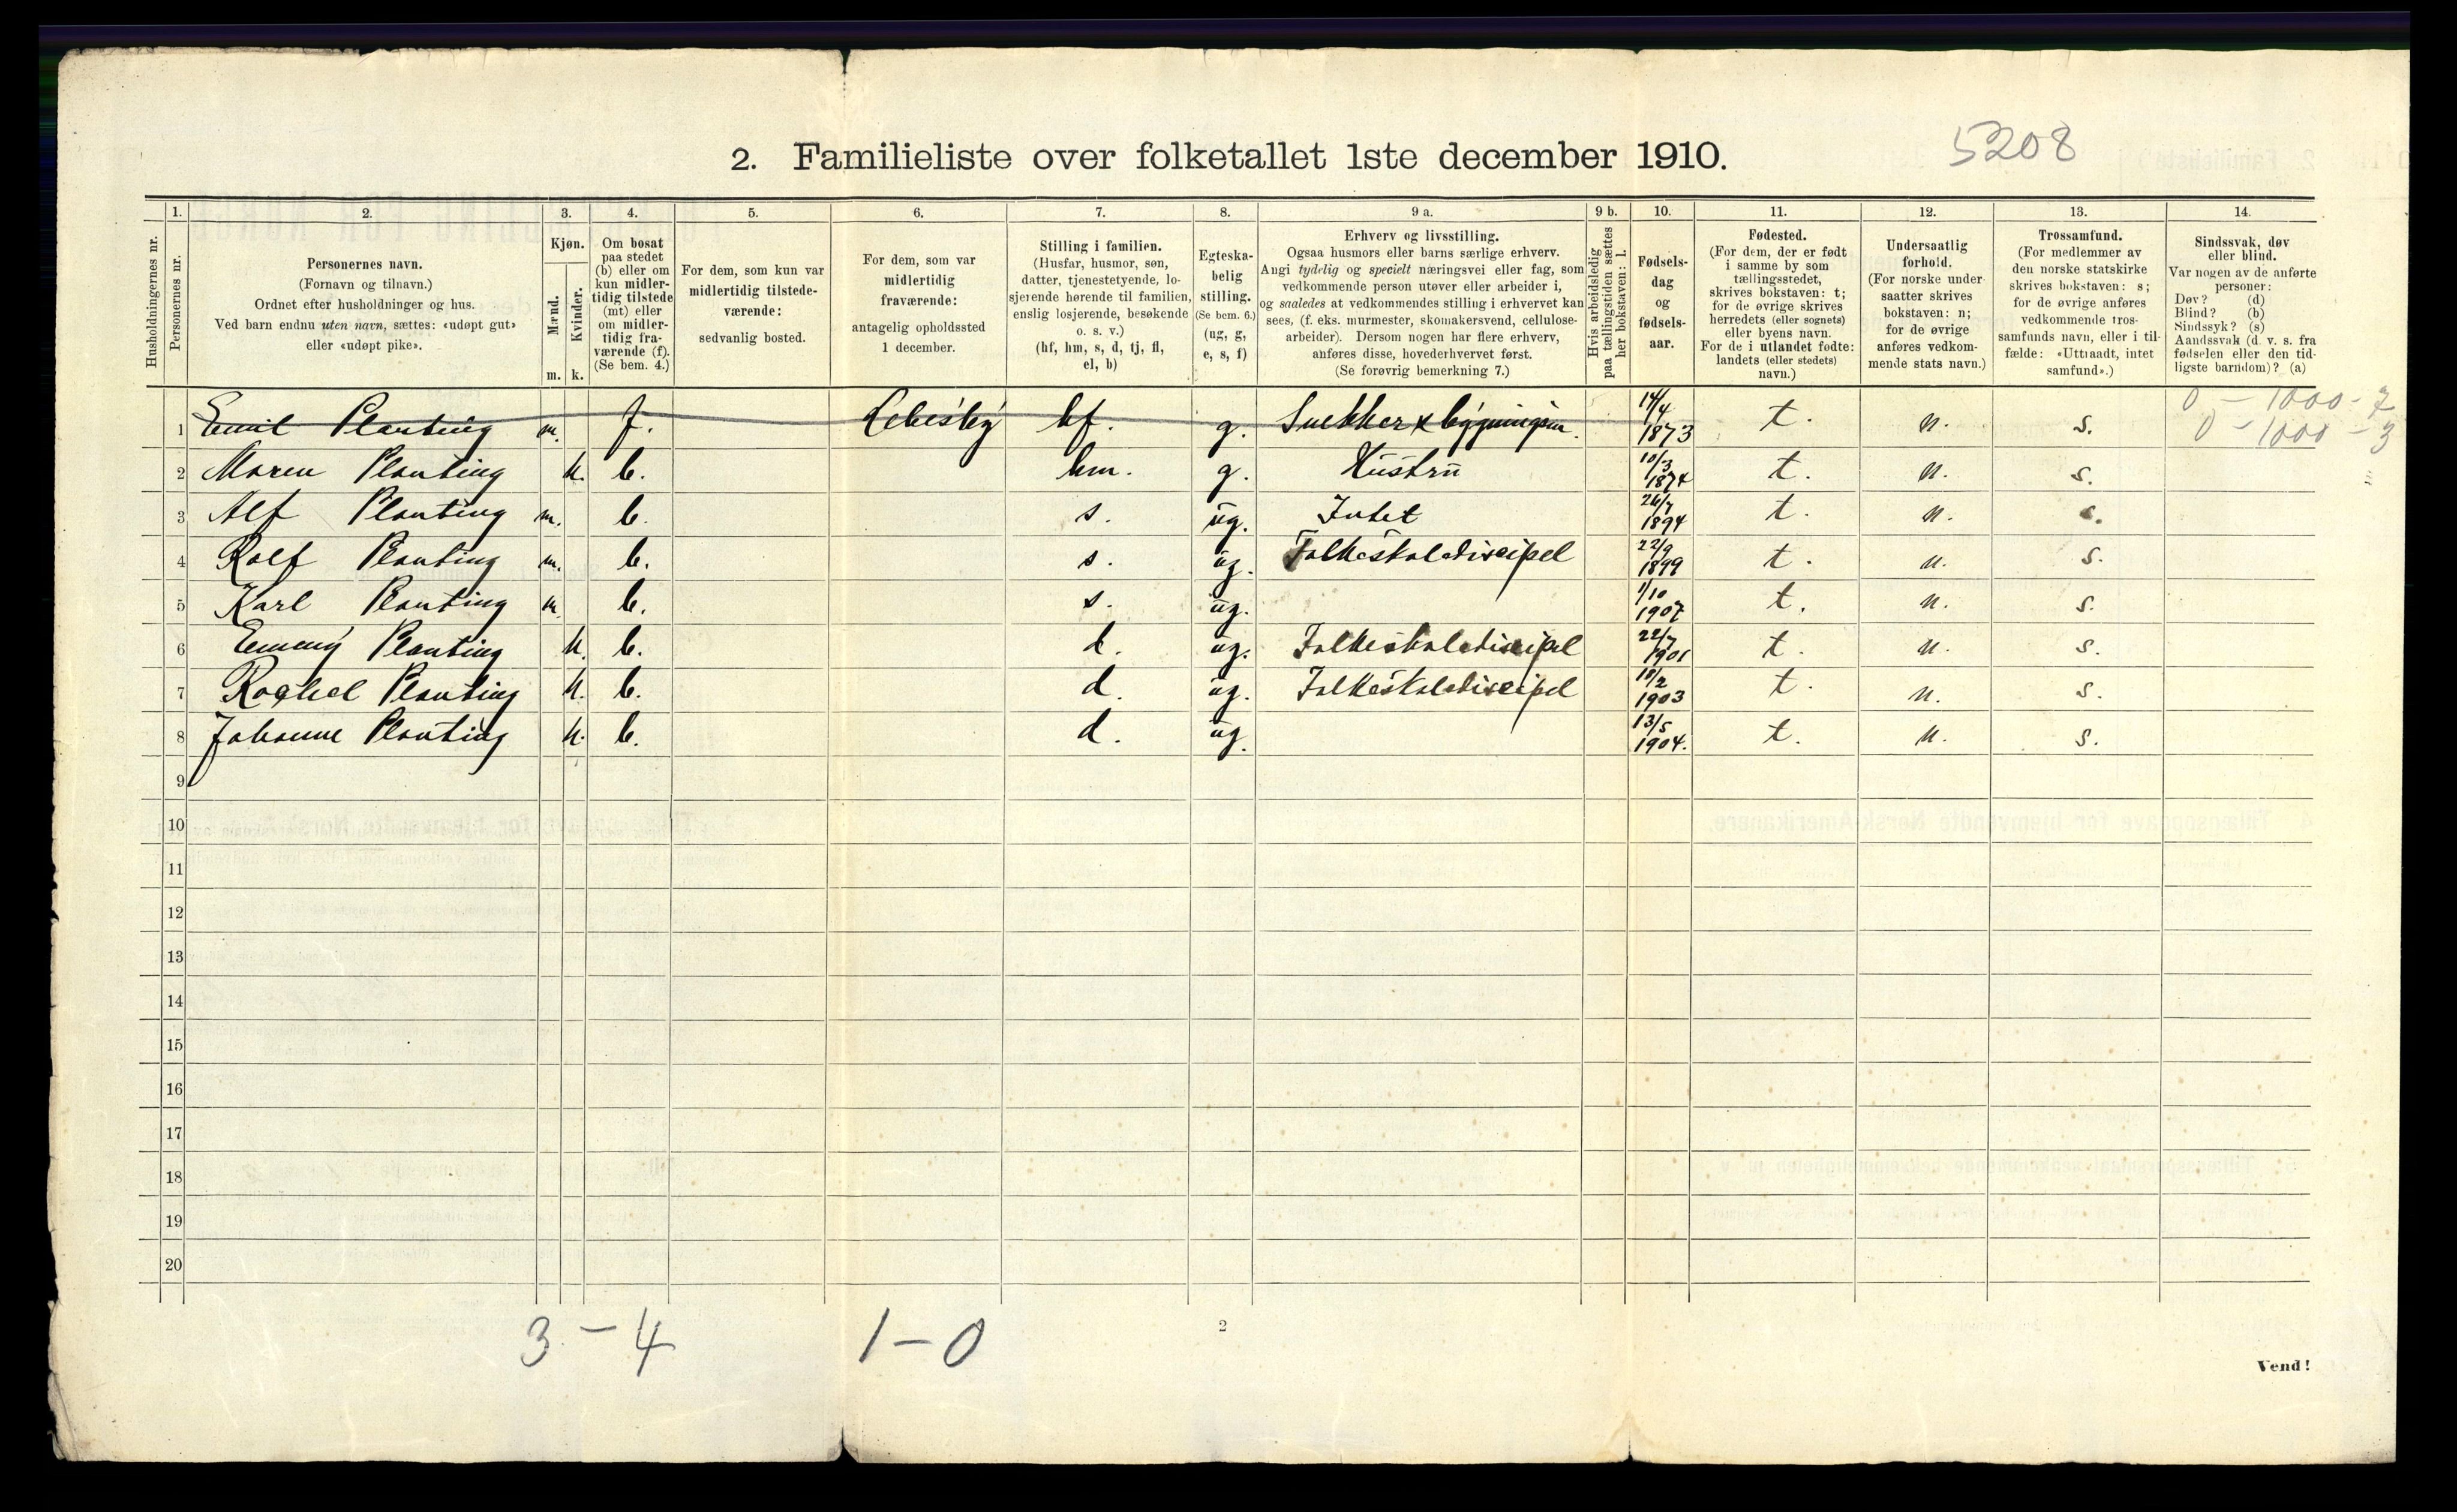 5208
2. Familieliste over folketallet 1ste december 1910.
1. 2. 3. 4. 5. 6. 7. 8. 9 a. 9 b. 10. 11. 12. 13. 14.
Husholdningernes nr.
Personernes nr.
Personernes navn.
(Fornavn og tilnavn.)
Ordnet efter husholdninger og hus.
Ved barn endnu uten navn, sættes: «udøpt gut»
eller «udøpt pike».
Kjøn.
Mænd.
Kvinder.
m. k.
Om bosat
paa stedet
(b) eller om
kun midler-
tidig tilstede
(mt) eller
om midler-
tidig fra-
værende (f).
(Se bem. 4.)
For dem, som kun var
midlertidig tilstede-
værende:
sedvanlig bosted.
For dem, som var
midlertidig
fraværende:
antagelig opholdssted
1 december.
Stilling i familien.
(Husfar, husmor, søn,
datter, tjenestetyende, lo-
sjerende hørende til familien,
enslig losjerende, besøkende
o. s. v.)
(hf, hm, s, d, tj, fl,
el, b)
Egteska-
belig
stilling.
(Se bem. 6.)
(ug, g,
e, s, f)
Erhverv og livsstilling.
Ogsaa husmors eller barns særlige erhverv.
Angi tydelig og specielt næringsvei eller fag, som
vedkommende person utøver eller arbeider i,
og saaledes at vedkommendes stilling i erhvervet kan
sees, (f. eks. murmester, skomakersvend, cellulose-
arbeider). Dersom nogen har flere erhverv,
anføres disse, hovederhvervet først.
(Se forøvrig bemerkning 7.)
Hvis arbeidsledig
paa tællingstiden sættes
her bokstaven: l.
Fødsels-
dag
og
fødsels-
aar.
Fødested.
(For dem, der er født
i samme by som
tællingsstedet,
skrives bokstaven: t;
for de øvrige skrives
herredets (eller sognets)
eller byens navn.
For de i utlandet fødte:
landets (eller stedets)
navn.)
Undersaatlig
forhold.
(For norske under-
saatter skrives
bokstaven: n;
for de øvrige
anføres vedkom-
mende stats navn.)
Trossamfund.
(For medlemmer av
den norske statskirke
skrives bokstaven: s;
for de øvrige anføres
vedkommende tros-
samfunds navn, eller i til-
fælde: «Uttraadt, intet
samfund».)
Sindssvak, døv
eller blind.
Var nogen av de anførte
personer:
Døv? (d)
Blind? (b)
Sindssyk? (s)
Aandssvak (d. v. s. fra
fødselen eller den tid-
ligste barndom)? (a)
0 - 1000 - 7
0 - 1000 - 3
1 Emil Planting m. f. Lebesby hf. g. Snekker & bygningsm. 14/4 1873 t. n. s.
2 Maren Planting k. b. hm. g. Hustru 10/3 1874 t. n. s.
3 Alf Planting m. b. s. ug. Intet 26/7 1894 t. n. s.
4 Rolf Planting m. b. s. ug. Folkeskolediscipel 22/9 1899 t. n. s.
5 Karl Planting m b. s. ug. 1/10 1907 t. n. s.
6 Emmy Planting k. b. d. ug. Folkeskolediscipel 22/7 1901 t. n. s.
7 Raghel Planting k. b. d. ug. Folkeskolediscipel 10/2 1903 t. n. s.
8 Johanne Planting k. b. d. ug. 13/5 1904. t. n. s.
9
10
11
12
13
14
15
16
17
18
19
20
3 - 4 1 - 0
2
Vend!